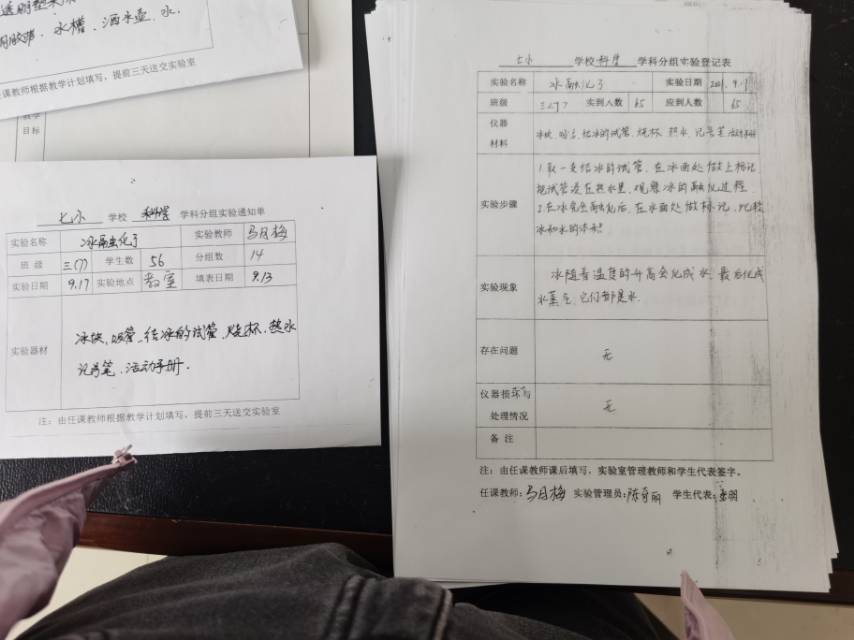 水槽、洒水壶、水.
任课教师根据教学计划填写，提前三天送交实验室
目标
七小 学校 科学 学科分组实验通知单
实验名称 冰融化了 实验教师 马月梅
班级 三(7) 学生数 56 分组数 14
实验日期 9.17 实验地点 教室 填表日期 9.13
实验器材 冰块、吸管、结冰的试管、烧杯、热水
记号笔、活动手册.
注：由任课教师根据教学计划填写，提前三天送交实验室
七小 学校 科学 学科分组实验登记表
实验名称 冰融化了 实验日期
班级 三(7) 实到人数 65 应到人数 65
仪器
材料
冰块、吸管、结冰的试管、烧杯、热水、记号笔
实验步骤
1.取一支结冰的试管，在冰面处做上标记，
把试管浸在热水里，观察冰的融化过程
2.在冰完全融化后，在水面处做标记，比较
冰和水的体积
实验现象
冰随着温度的升高会化成水，最后化成
水蒸气，它们都是水.
存在问题 无
仪器损坏与
处理情况
无
备注
注：由任课教师课后填写，实验室管理教师和学生代表签字。
任课教师：马月梅 实验管理员：陈奇丽 学生代表：